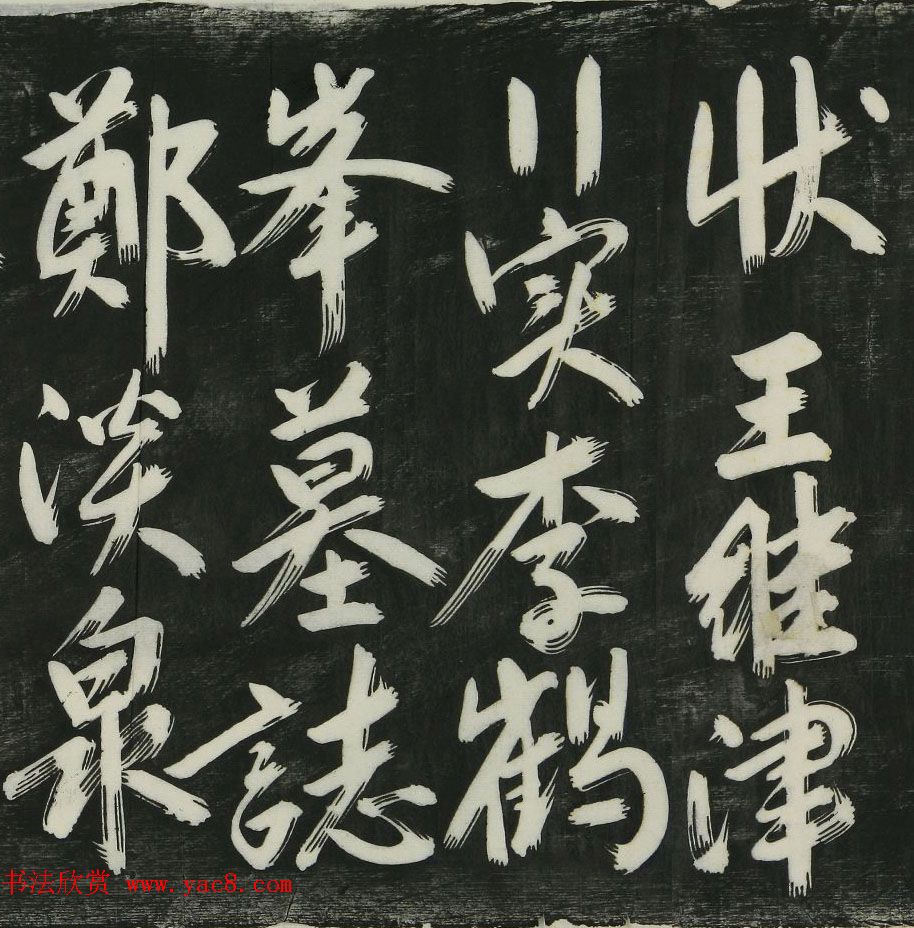 状王继津
行实李鹤
峯墓誌
鄭淡泉
书法欣赏 www.yac8.com